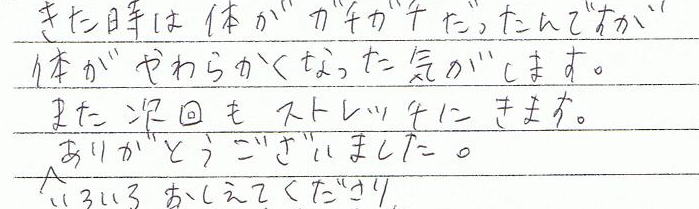 きた時は体がガチガチだったんですが
体がやわらかくなった気がします。
また次回もストレッチにきます。
ありがとうございました。
いろいろおしえてくださり